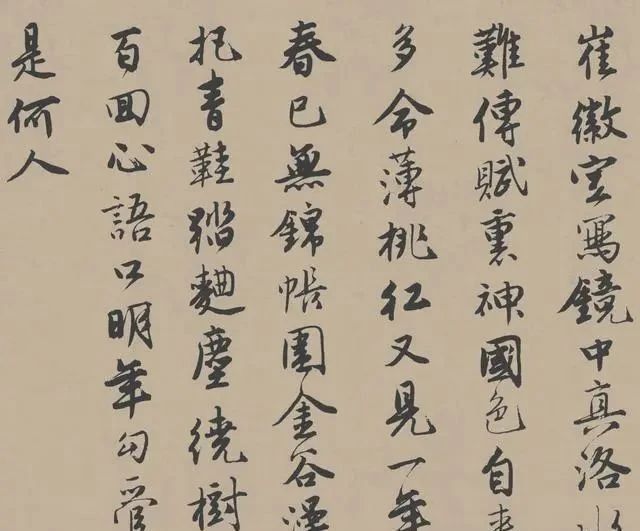 崔徽空寫鏡中真洛
難傳賦裏神國色自
多命薄桃紅又見一年
春已無錦帳圍金谷漫
把青鞋踏麴塵繞樹
百回心語口明年勾管
是何人